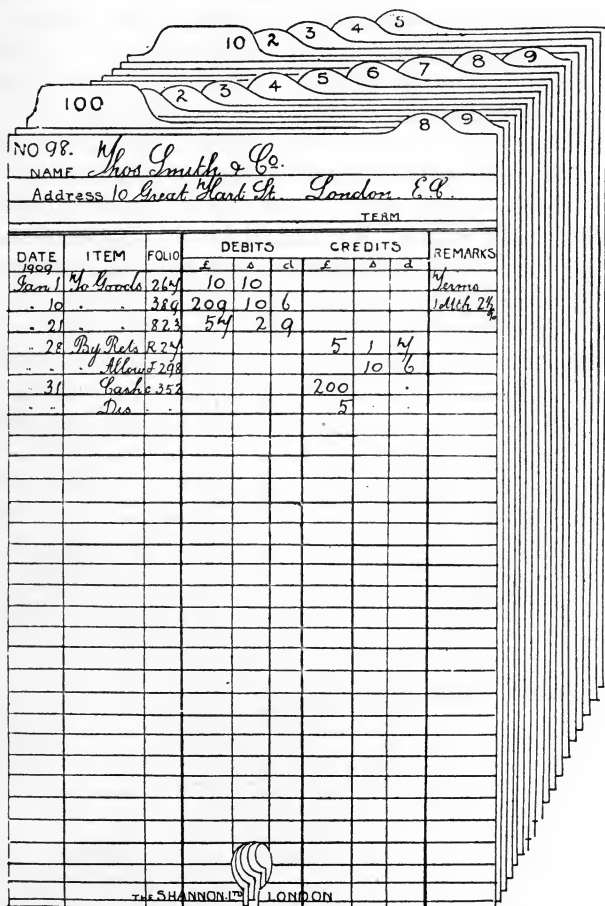 10 2 3 4 5
2 3 4 5 6 7 8 9
100
8 9
NO 98. Thos Smith & Co.
NAME
Address 10 Great Hart St. London E.C.
TERM
DATE ITEM FOLIO DEBITS CREDITS REMARKS
1909 £ s d £ s d
Jan 1 To Goods 267 10 10 Terms
" 10 " " 389 209 10 6 1 Mth 2½ %
" 21 " " 823 57 2 9
" 28 By Rets R 27 5 1 7
" " " Allow J 298 10 6
31 Cash C 352 200 .
" " Dis . . 5 . .
THE SHANNON LTD LONDON